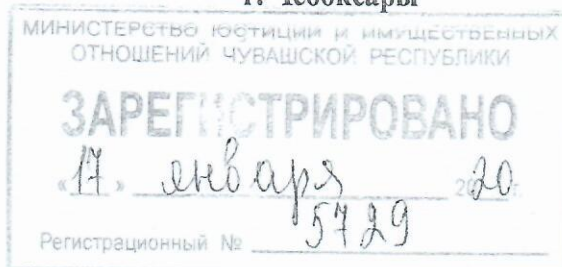 г. Чебоксары
МИНИСТЕРСТВО ЮСТИЦИИ И ИМУЩЕСТВЕННЫХ
ОТНОШЕНИЙ ЧУВАШСКОЙ РЕСПУБЛИКИ
ЗАРЕГИСТРИРОВАНО
«17» января 2020 г.
Регистрационный № 5729